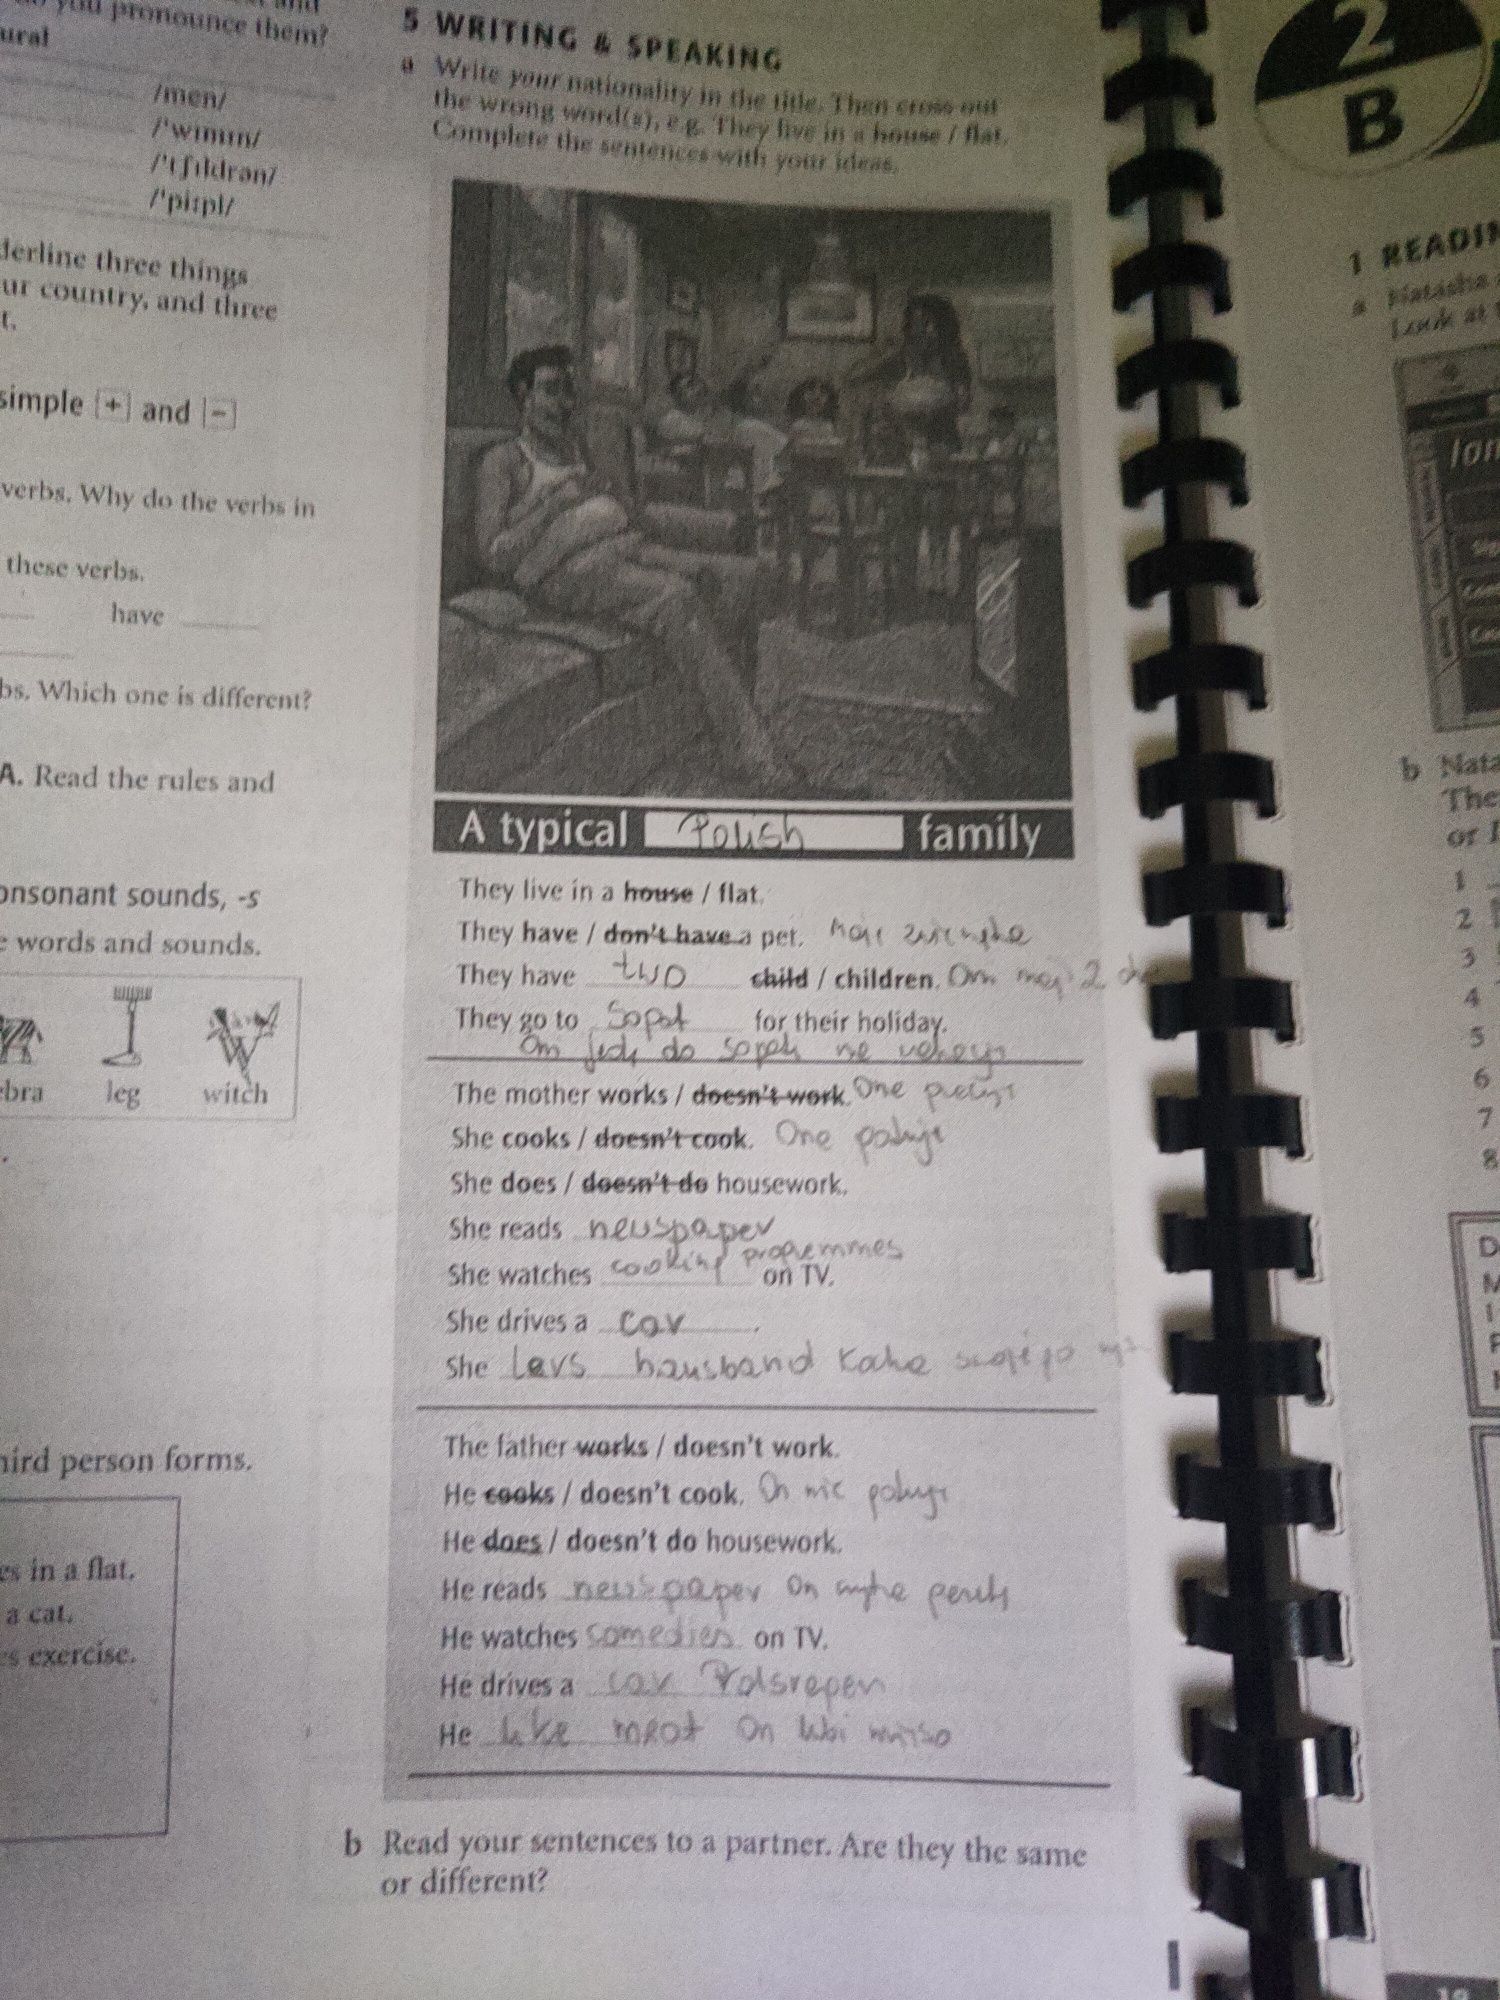 you pronounce them?
ural
/men/
/ˈwɪmɪn/
/ˈtʃɪldrən/
/ˈpiːpl/
derline three things
ur country, and three
t.
simple + and −
verbs. Why do the verbs in
these verbs.
have
bs. Which one is different?
A. Read the rules and
onsonant sounds, -s
e words and sounds.
ebra leg witch
hird person forms.
es in a flat.
a cat.
s exercise.
5 WRITING & SPEAKING
a Write your nationality in the title. Then cross out
the wrong word(s), e.g. They live in a house / flat.
Complete the sentences with your ideas.
A typical Polish family
They live in a house / flat.
They have / don't have a pet.
They have two child / children. 2
They go to Sopot for their holiday.
do
The mother works / doesn't work.
She cooks / doesn't cook.
She does / doesn't do housework.
She reads newspaper
She watches cooking programmes on TV.
She drives a car.
She hausband
The father works / doesn't work.
He cooks / doesn't cook. On nie
He does / doesn't do housework.
He reads newspaper On
He watches comedies on TV.
He drives a car
He like meat On lubi mięso
b Read your sentences to a partner. Are they the same
or different?
2
B
1 READIN
a Natasha
Look at
b Nata
The
or
1
2
3
4
5
6
7
8
19